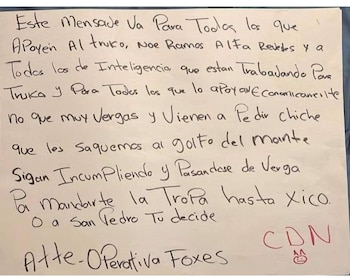 Este Mensage Va Para Todos los que
Apoyen Al truko, Noe Ramos Alfa Reveles y a
Todos los de Inteligencia que estan Trabajando Para
Truko y Para Todos los que lo apoyan Economicamente
no que muy Vergas y Vienen a Pedir chiche
que les Saquemos al golfo del mante
Sigan Incumpliendo y Pasandose de Verga
Pa Mandarte la Tropa hasta Xico.
O a San Pedro Tu decide
CDN
Atte-Operativa Foxes